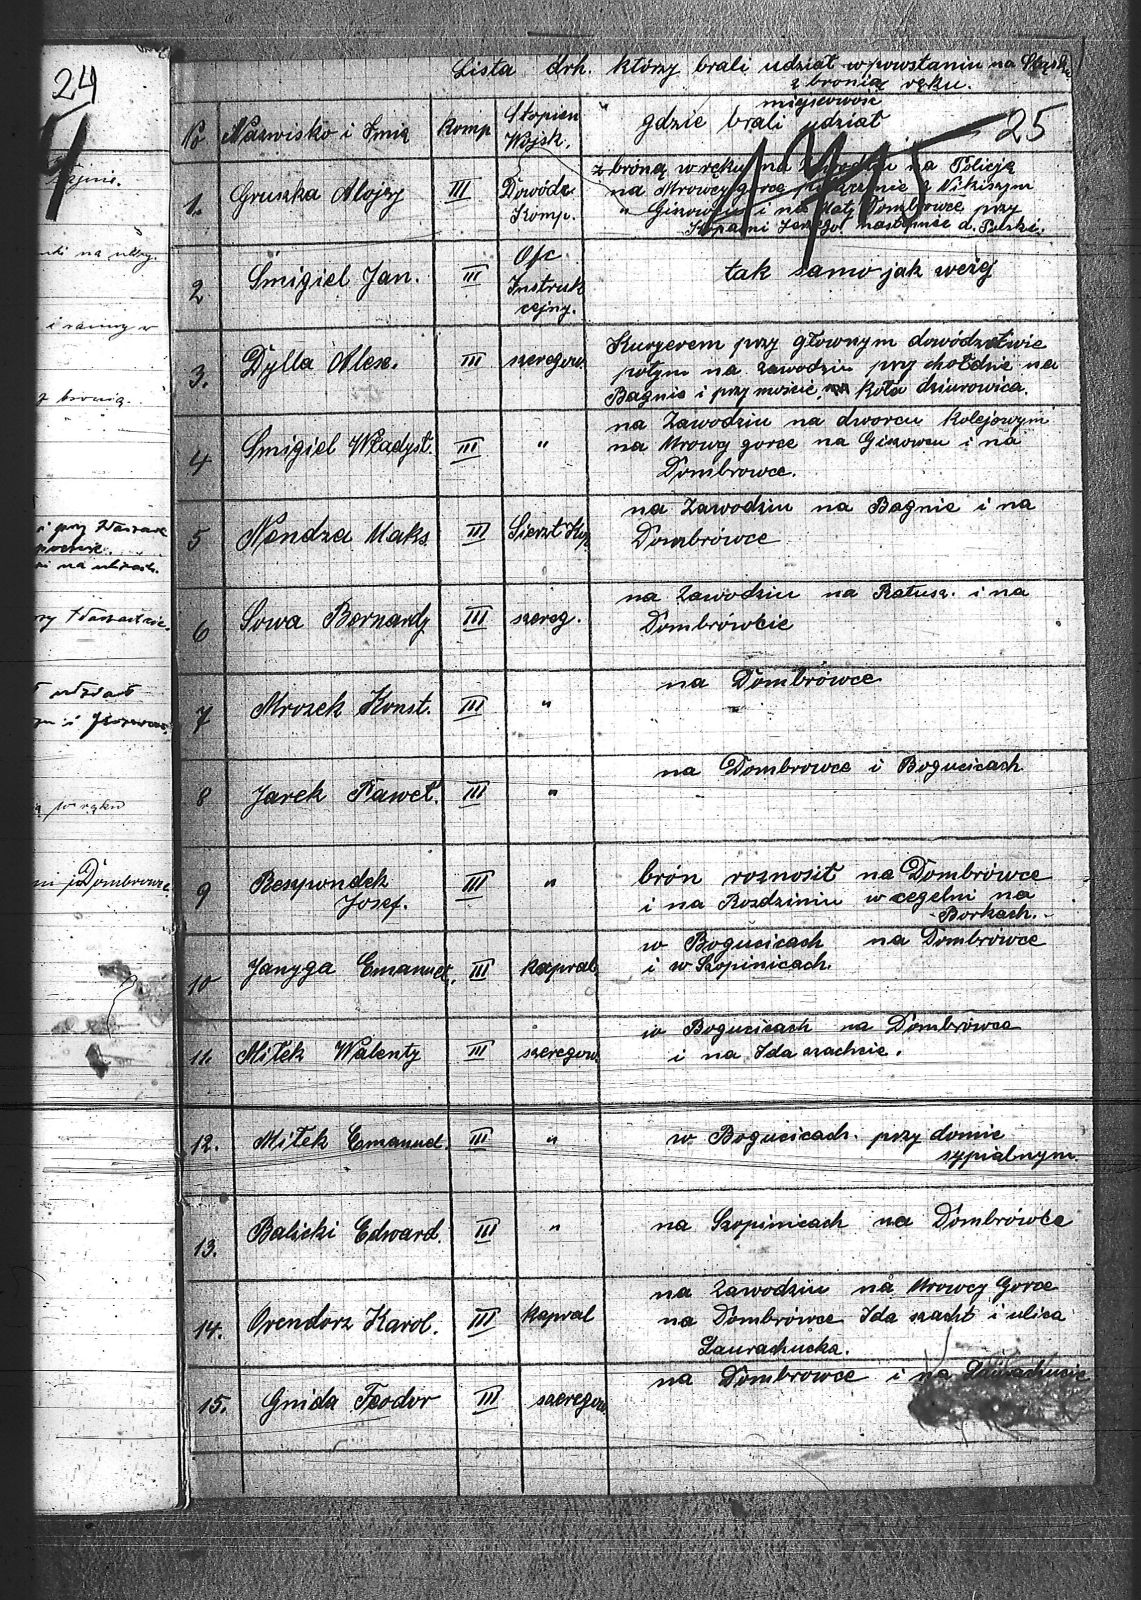 24
Lista drh. którzy brali udział w powstaniu na Śląsku
z bronią ręku.
No Nazwisko i Imię komp Stopien Wojsk. miejscowość gdzie brali udział
25
1. Gruszka Alojzy III Dowódz. Komp. z broną w ręku na na Policję
na Mrowcy gorce z Nikiszym
" Giszowcu i na Małej Dombrowce przy
Kopalni d. Polski.
2 Smigiel Jan. III Ofc. Instruk cejny. tak samo jak weżej
3. Dylla Alex. III szeregow. Kurjerem przy głownym dowództwie
potym na zawodziu przy chołdzie na
Bagnie i przy moście koła dziurowica.
4 Smigiel Władysł. III " na Zawodziu na dworcu kolejowym
na Mrowy gorce na Giszowcu i na
Dombrowce.
5 Nendza Maks. III Sierżt Kup. na Zawodziu na Bagnie i na
Dombrówce
6 Sowa Bernardy III szereg. na Zawodziu na Ratusz. i na
Dombrówcie
7 Mrozek Konst. III " na Dombrówce
8 Jarek Paweł. III " na Dombrowce i Bogucicach
9 Respondek Josef. III " brón roznosił na Dombrówce
i na Rozdziniu w cegelni na
Borkach.
10 Janyga Emanuel. III kapral w Bogucicach na Dombrówce
i w Szopinicach.
11. Miłek Walenty III szeregow. w Bogucicach na Dombrówce
i na Ida szachcie.
12. Miłek Emanuel. III " w Bogucicach. przy domie
sypialnym.
13. Balicki Edward. III " na Szopinicach na Dombrówce
14. Orendorz Karol. III kapral na Zawodziu na Mrowcy Gorce
na Dombrówce Ida szacht i ulica
Laurachucka.
15. Gnida Teodor III szeregow. na Dombrowce i na Laurachucie